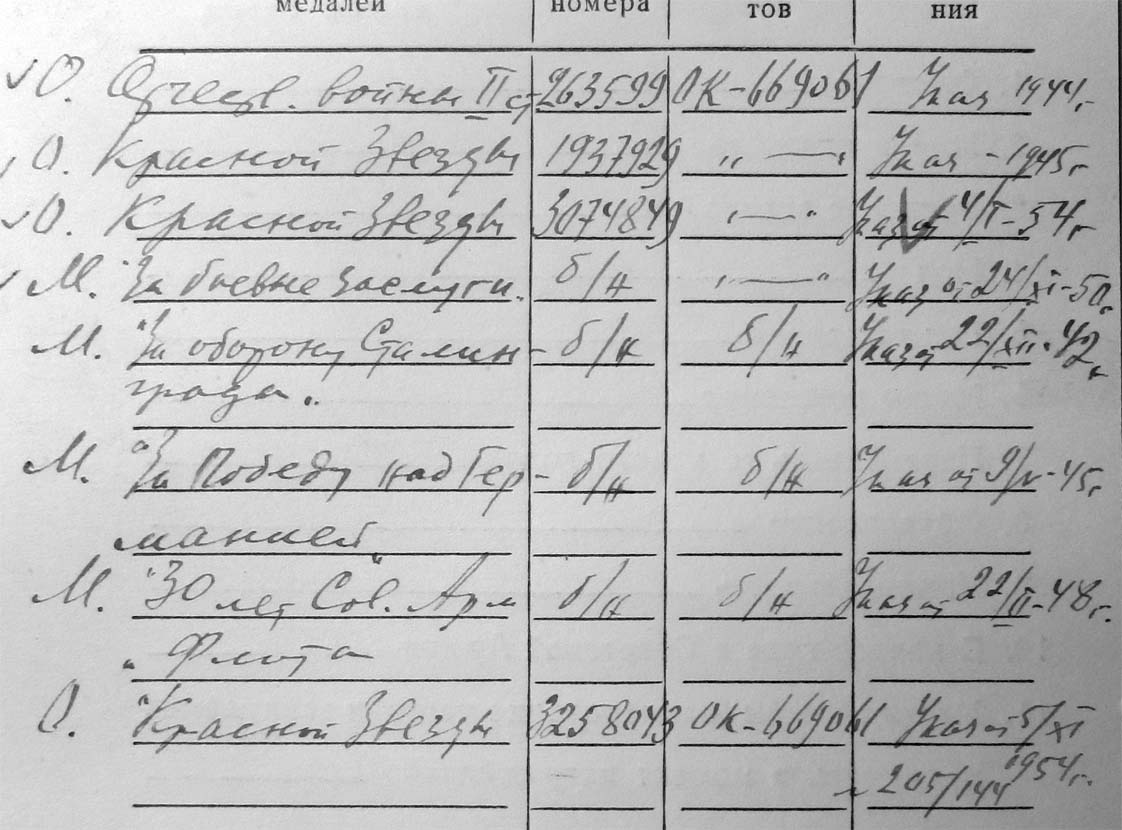 медалей номера тов ния
О. Отечеств. войны II ст. 263599 ОК-669061 Указ 1944г.
О. Красной Звезды 1937929 „ — " Указ - 1945г.
О. Красной Звезды 3074849 „ — " Указ от 4/I-54г.
М. "За боевые заслуги. б/н „ — " Указ от 24/XI-50г.
М. "За оборону Сталин- б/н б/н Указ от 22/XII-42г.
града".
М. "За Победу над Гер- б/н б/н Указ от 9/V-45г.
манией"
М. "30 лет Сов. Арм б/н б/н Указ от 22/II-48г.
и Флота
О. "Красной Звезды 3258043 ОК-669061 Указ от 5/XI
1954г.
205/144